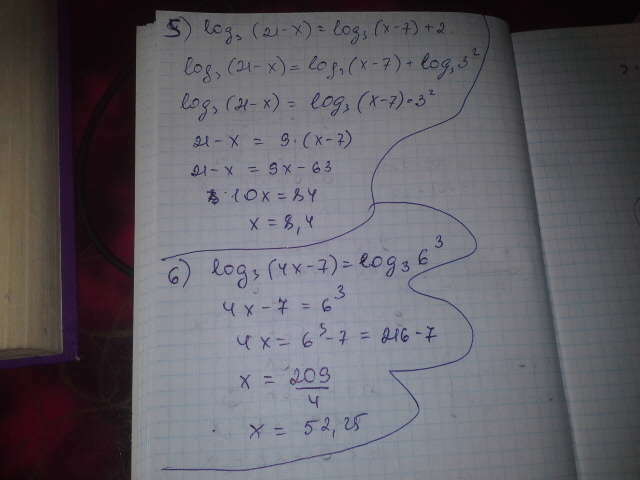 5) log₃(21-x) = log₃(x-7)+2
log₃(21-x) = log₃(x-7) + log₃3²
log₃(21-x) = log₃(x-7)·3²
21-x = 9·(x-7)
21-x = 9x-63
10x = 84
x = 8,4
6) log₃(4x-7) = log₃6³
4x-7 = 6³
4x = 6³-7 = 216-7
x = 209/4
x = 52,25